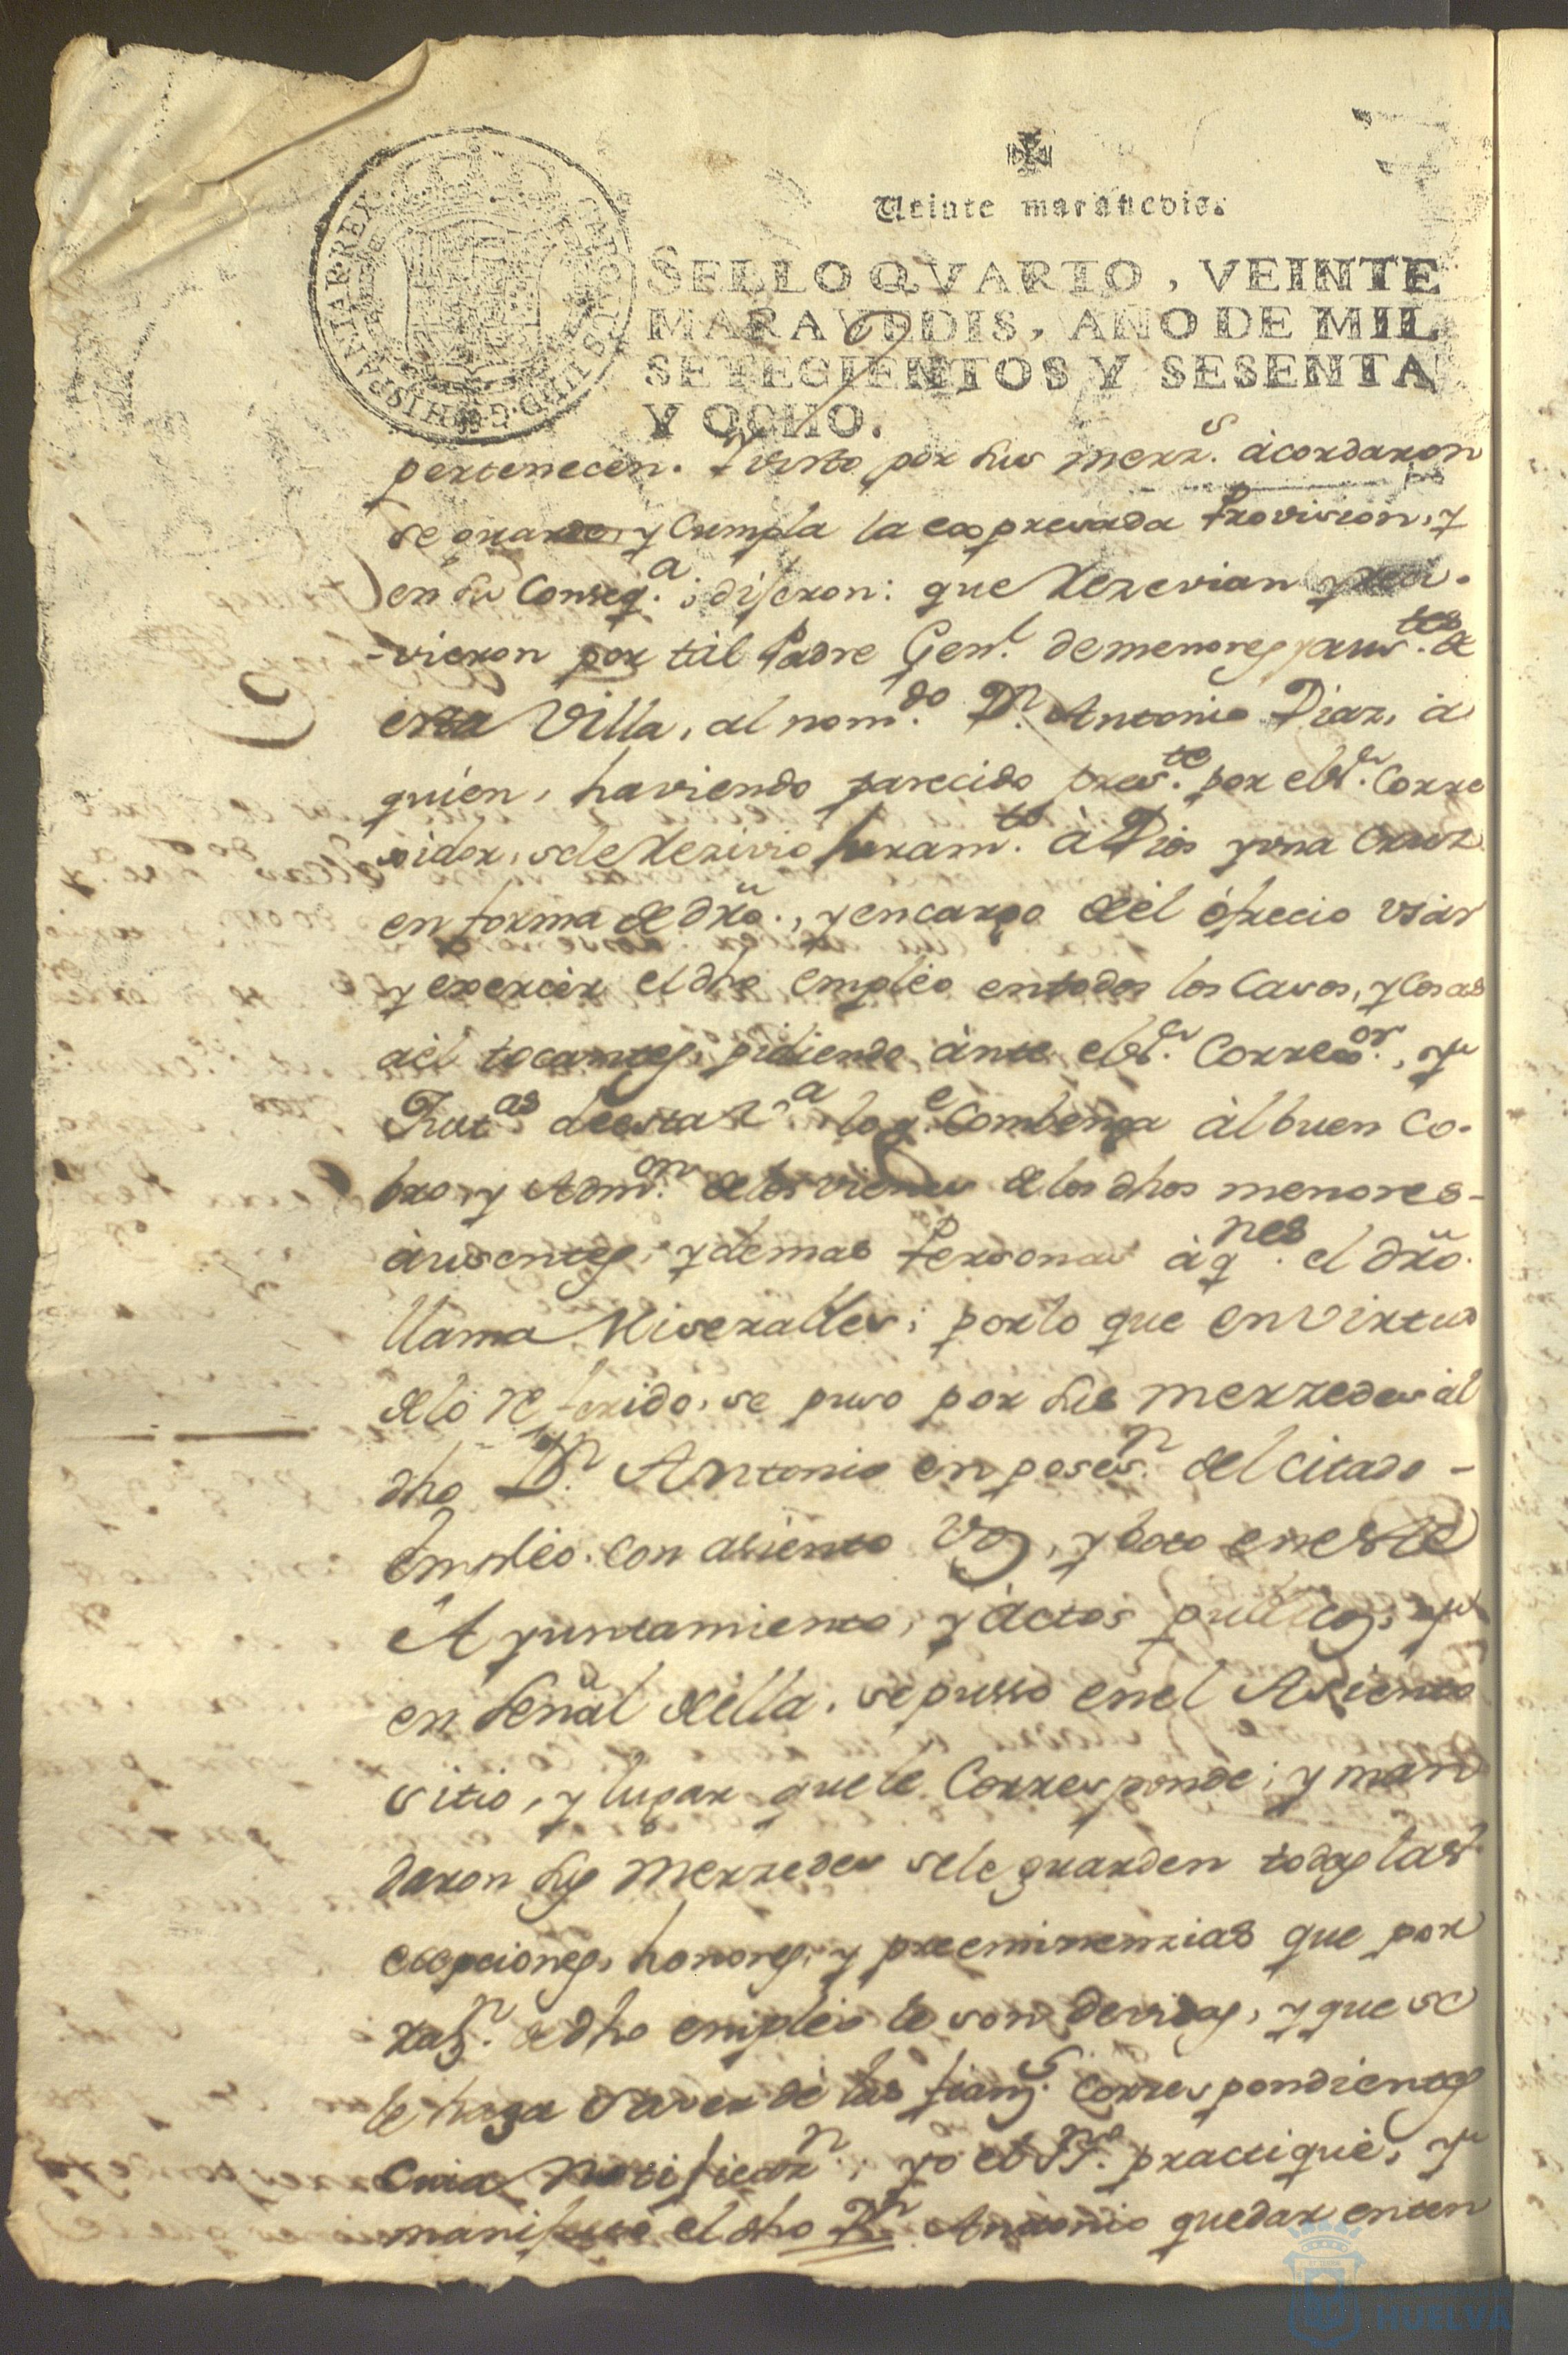 Veinte maravedis.
SELLO QVARTO, VEINTE
MARAVEDIS, AÑO DE MIL
SETECIENTOS Y SESENTA
Y OCHO.
CAROLUS III D.G. HISPANIAR. REX
pertenecen. Y visto por sus merz.s acordaron
se guarde, y Cumpla la expresada Provision, y
en su Conseq.a; dijeron: que Rezevian y reci-
-vieron por tál Padre Gen.l de menores y aus.tes de
esta Villa, al nom.do D.n Antonio Diaz, à
quien, haviendo parecido pres.te por el S.r Corre
gidor, se le Rezivio Juram.to à Dios y una Cruz
en forma de dro., y en cargo de èl ófrecio usár
y exercer el dho empléo en todos los Casos, y Cosas
áèl tocantes, pidiendo ànte el S.r Correg.or, y
Just.as de esta V.a lo q.e Combenga àl buen co-
bro, y Adm.on de los vienes de los dhos menores-
àusentes, y demas Personas àq.nes el dro.
llama Miserables; por lo que en virtud
de lo referido, se puso por sus merzedes àl
dho D.n Antonio en poses.n del citado-
Empleo. con asiento Voz, y boto en este
Ayuntamiento, y àctos publicos, y
en señal de ella, se pusso en el Asiento
sitio, y lugar que le Corresponde; y man
daron sus Merzedes se le guarden todas las
excepciones, honores, y preeminenzias que por
raz.n de dho empléo le son devidas, y que se
le haga Saver dé las fianz.s Correspondientes
Cuia Notificaz.n, yo el SS.no practiqué, y
manifestó el dho D.n Antonio quedar enten
HUELVA